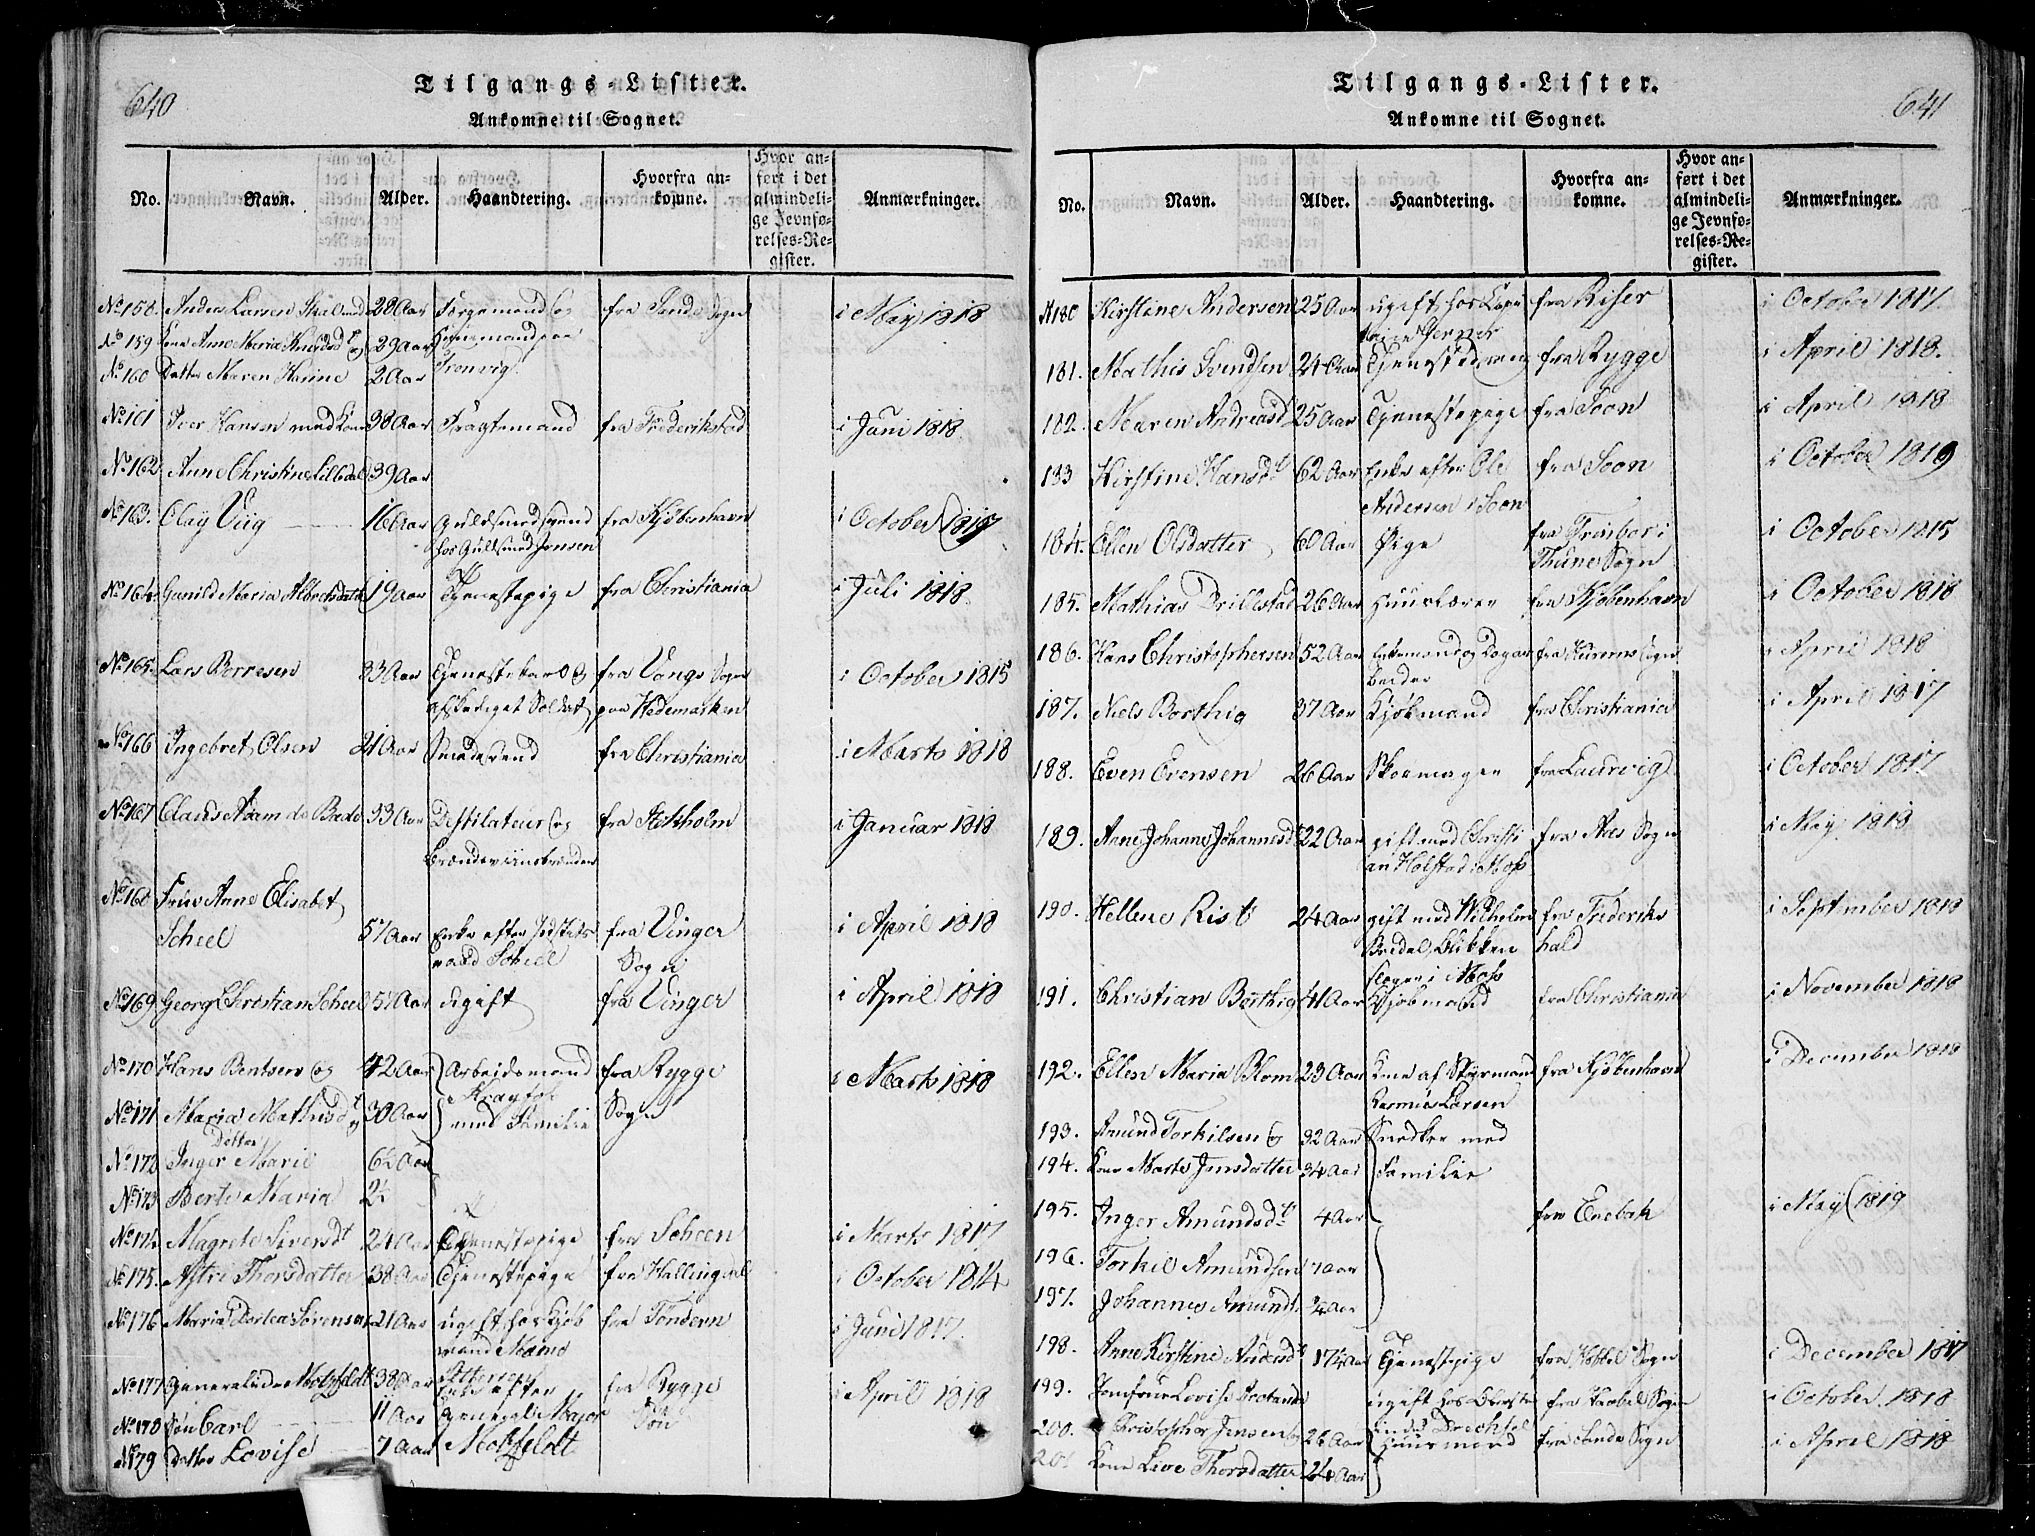 640
Tilgangs-Lister.
Ankomne til Sognet.
No. Navn. Alder. Haandtering. Hvorfra ankomne. Hvor anført i det almindelige Jevnførelses-Register. Anmærkninger.
No 158. Anders Larsen 28 Aar og fra Sande Sogn i May 1818
No 159 Kone Anne Maria Knudsd og 29 Aar
No 160 Datter Maren Karine 2 Aar
No 161 Iver Hansen med Kone 38 Aar Fragtemand fra Frederikstad i Juni 1818.
No 162 Anne Christine Lilledal 39 Aar
No 163. Olay Viig 16 Aar Guldsmedsvend fra Kjøbenhavn i October 1817
hos Guldsmed Jensen
No 164 Gunild Maria Albretsdatt 19 Aar Tjenestepige fra Christiania i Juli 1818.
No 165. Lars Borresen 33 Aar Tjenestekarl og fra Vangs Sogn i October 1815
afskediget Soldat paa Hedemarken
No 166 Ingebret Olsen 21 Aar Smedesvend fra Christiania i Marts 1818
No 167 Claus Adam de Bade 33 Aar Destilateur og fra Stokholm i Januar 1818
Brændeviinsbrænder
No 168 Frue Anne Elisabet
Scheel 57 Aar Enke efter fra Vinger i April 1818
raad Scheel Sogn
No 169 Georg Christian Scheel 57 Aar ugift fra Vinger i April 1818
No 170 Hans Bentsen og 42 Aar Arbeidsmand fra Rygge i Marts 1818
No 171 Maria Mathisdt 30 Aar med Familie Sogn
Datter
No 172 Inger Marie 6½ Aar
No 173 Berte Maria 2½
No 174 Magrete Siversdt 24 Aar Tjenestepige fra Scheen i Marts 1817
No 175. Astri Thorsdatter 38 Aar Tjenestepige fra Hallingdal i October 1814
No 176 Maria Dortea Sørensen 21 Aar ugift hos Kjøb fra Tøndern i Juni 1817.
mand Mamo
Pettersen
No 177 Generalinde Motzfeldt 38 Aar Enke efter fra Rygge i April 1818
No 178 Søn Carl 11 Aar General Major Sogn
No 179 Datter Lovise 7 Aar Motzfeldt
641
Tilgangs-Lister.
Ankomne til Sognet.
No. Navn. Alder. Haandtering. Hvorfra ankomne. Hvor anført i det almindelige Jevnførelses-Register. Anmærkninger.
No 180 Kirstine Andersen 25 Aar ugift hos Capi fra Riser i October 1817.
tain Gerner
181. Mathis Svendsen 24 Aar Tjenestedreng fra Rygge i April 1818.
182. Maren Andreasd 25 Aar Tjenestepige fra Soon i April 1818
183 Kirstine Hansdt 62 Aar Enke efter Ole fra Soon i October 1819
Andersen i Soon
184. Ellen Olsdatter 60 Aar Pige fra Trøsbor i i October 1815
Thune Sogn
185. Mathias Drillestad 26 Aar Huuslærer fra Kjøbenhavn i October 1818
186. Hans Christophersen 52 Aar Enkemand og Dagar fra Hurums Sogn i April 1818
beider
187. Niels Borthig 37 Aar Kjøbmand fra Christiania i April 1817
188. Even Evensen 26 Aar Skoemager fra Laurvig i October 1817
189. Anne Johanne Johannesdt 22 Aar gift med Christi fra Aas Sogn i May 1818
an Holstad i Moss
190. Hellene Rist 24 Aar gift med Wilhelm fra Frideriks i September 1818
Bredal Blikken hald
slager i Moss
191. Christian Borthig 41 Aar Kjøbmand fra Christiania i November 1818
192. Ellen Maria Blom 23 Aar Kone af Styrmand fra Kjøbenhavn i December 1818
Rasmus Larsen
193. Amund Torkilsen og 32 Aar Snedker med
194. Kone Marte Jensdatter 34 Aar Familie
195. Inger Amundsdt 4 Aar fra Enebak i May 1819
196. Torkil Amundsen 7 Aar
197. Johannes Amunds 2 Aar
198. Anne Kirstine Andersdt 17½ Aar Tjenestepige fra Hobbel Sogn i December 1817
199. Jomfrue Lovise ugift hos Oberst fra Sogn i October 1818
inde Drechsel
200. Christopher Jensen og 26 Aar Huusmand fra Sande Sogn i April 1818
201 Kone Live Thorsdatter 24 Aar